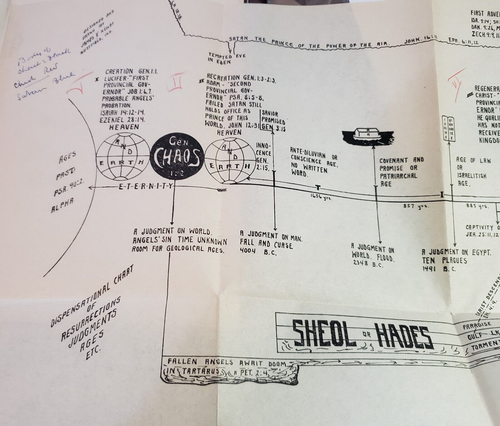 FIRST ADVE
SATAN THE PRINCE OF THE POWER OF THE AIR
JOHN. 16:
EPH. 6:11, 12.
ZECH 9:9
TEMPTED EVE
IN EDEN
II
CREATION GEN.1:1.
LUCIFER "FIRST
PROVINCIAL GOV-
ERNOR" JOB
PROBABLE ANGELS'
PROBATION
ISAIAH 14:12-14.
EZEKIEL 28:14.
HEAVEN
AND
EARTH
Gen.
CHAOS
1:2
RECREATION GEN.1:3-2:3.
ADAM - "SECOND
PROVINCIAL GOV-
ERNOR" PSA. 8:5-8.
FAILED SATAN STILL
HOLDS OFFICE AS
PRINCE OF THIS
WORLD. JOHN 12:31
HEAVEN
AND
EARTH
SAVIOR
PROMISED
GEN. 3:15
INNO-
CENCE
GEN.
2:15
ANTE-DILUVIAN OR
CONSCIENCE AGE.
NO WRITTEN
WORD.
COVENANT AND
PROMISE OR
PATRIARCHAL
AGE
AGE OF LAW
OR
ISRAELITISH
AGE.
AGES
PAST
PSA. 90:2
ALPHA
ETERNITY
1656 yrs.
857 yrs.
A JUDGMENT ON WORLD.
ANGELS' SIN TIME UNKNOWN
ROOM FOR GEOLOGICAL AGES.
A JUDGMENT ON MAN.
FALL AND CURSE.
4004 B.C.
A JUDGMENT ON
WORLD. FLOOD.
2348 B.C.
A JUDGMENT ON EGYPT.
TEN PLAGUES
1491 B.C.
CAPTIVITY O
JER. 25:11, 12
DISPENSATIONAL CHART
OF
RESURRECTIONS
JUDGMENTS
AGES
ETC.
SHEOL OR HADES
PARADISE
TORMENT
FALLEN ANGELS AWAIT DOOM
IN TARTARUS, II PET. 2:4.